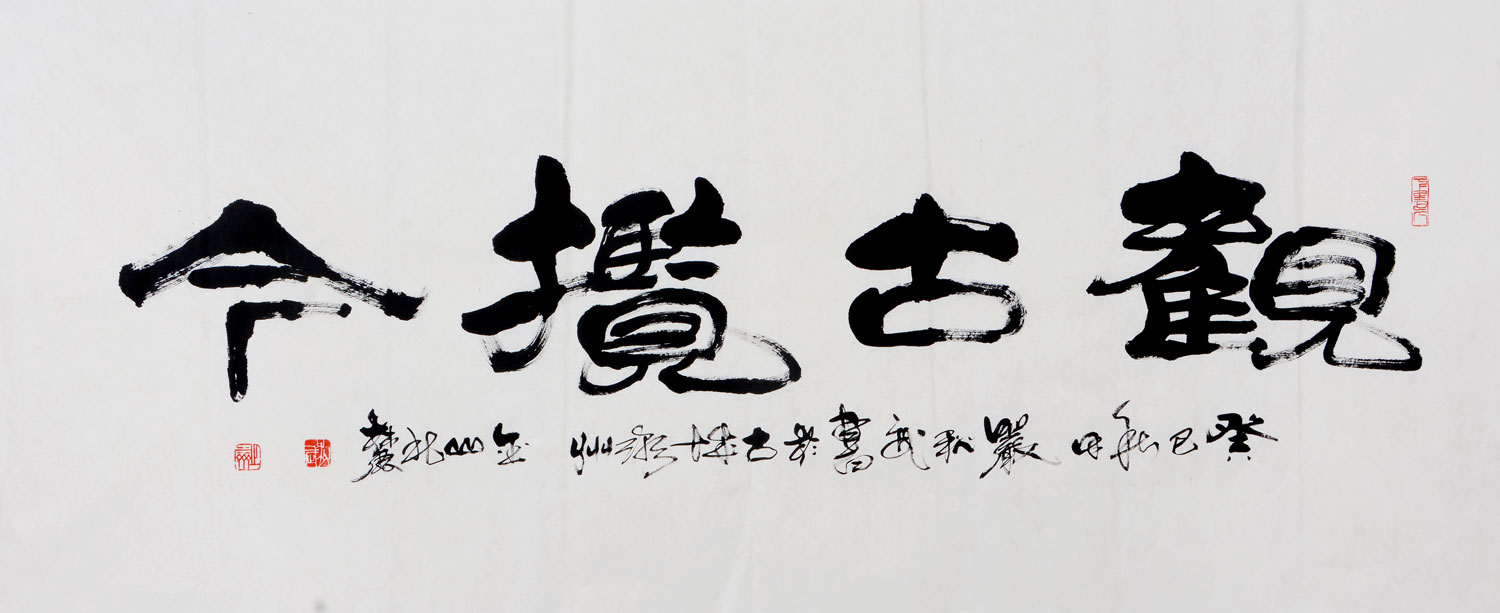 觀古攬今
癸巳秋 嚴 武書於古城 州金山北麓